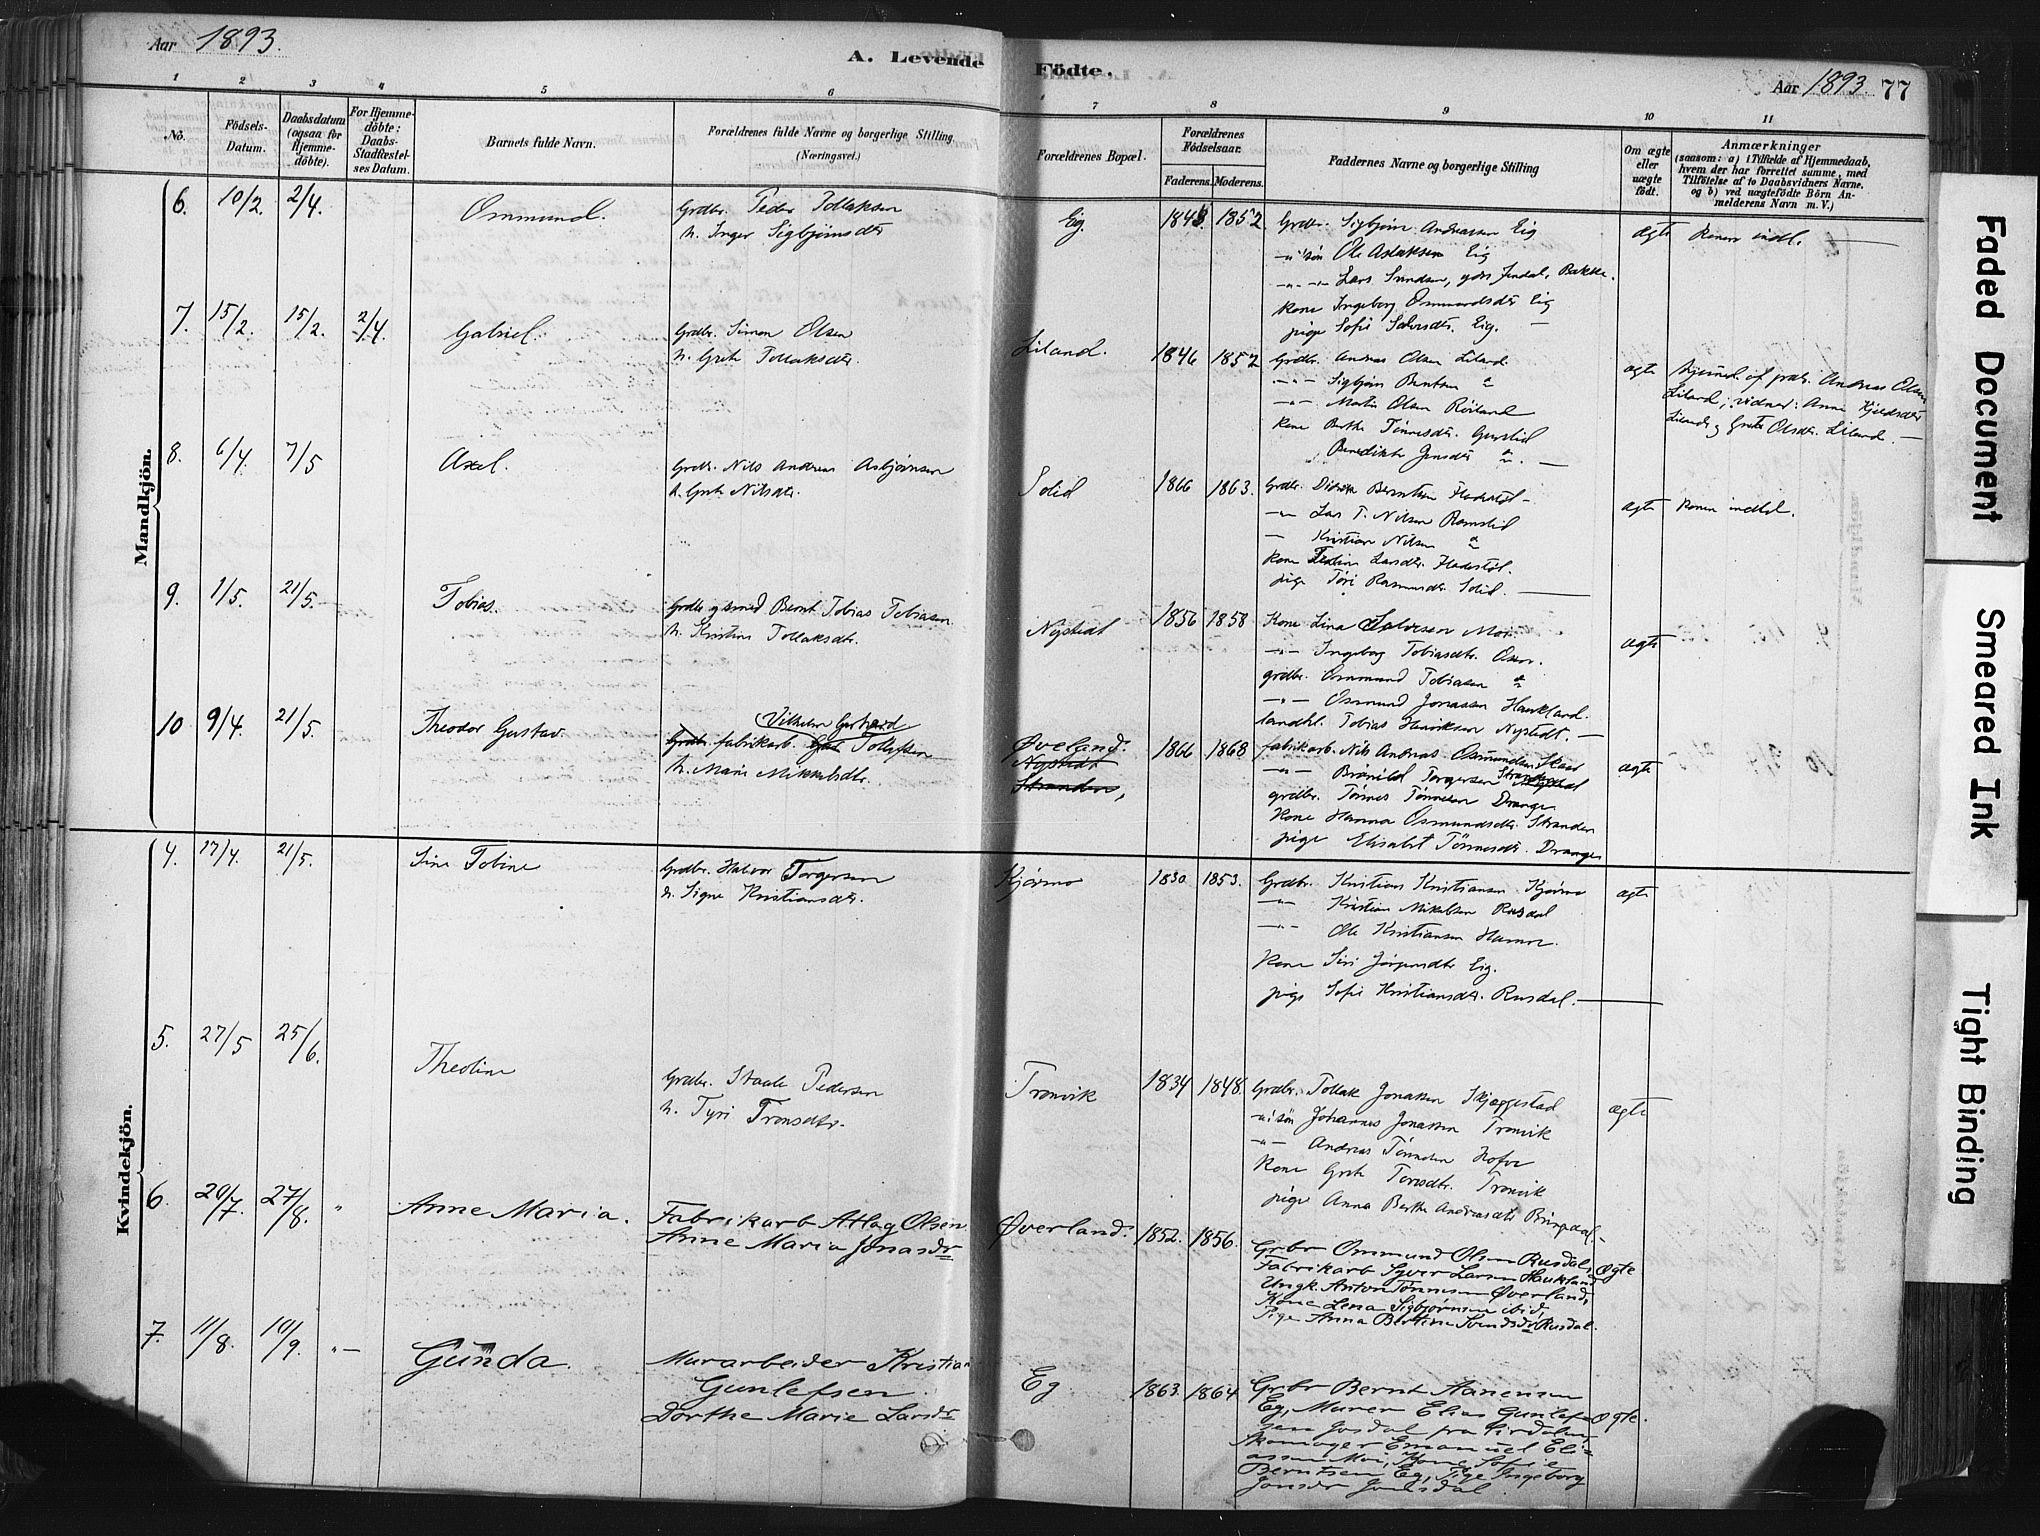 Aar 1893.
A. Levende Födte.
Aar 1893 77
1 2 3 4 5 6 7 8 9 10 11
No.
Födsels-Datum.
Daabsdatum (ogsaa for Hjemme-döbte).
For Hjemme-döbte: Daabs-Stadfæstel-ses Datum.
Barnets fulde Navn.
Forældrenes fulde Navne og borgerlige Stilling.
(Næringsvei.)
Forældrenes Bopæl.
Forældrenes Födselsaar.
Faderens. Moderens.
Faddernes Navne og borgerlige Stilling
Om ægte eller uægte födt.
Anmærkninger
(saasom: a) i Tilfælde af Hjemmedaab,
hvem der har forrettet samme, med
Tilföielse af to Daabsvidners Navne.
og b) ved uægtefödte Börn An-
melderens Navn m. V.)
Mandkjön.
6. 10/2. 2/4. Ommund.
Grdbr. Peder Tollaksen
h. Inger Sigbjørnsdtr
Eig. 1843. 1852
Grdbr. Sigbjørn Andreassen Eig
søn Ole Aslaksen Eig
Lars Svendsen, Bakke.
Kone Ingeborg Osmundsdtr Eig
pige Sofie Eig.
ægte Konen indl.
7. 15/2. 15/2. 2/4. Gabriel.
Grdbr. Simon Olsen
h. Grete Tollaksdtr.
Liland. 1846 1852
Grdbr. Andreas Olsen Liland
Sigbjørn Berntsen
Martin Olsen Røiland
Kone Berthe Tønnesdtr.
Benedikte Jensdtr
ægte Hjemmed. af grdbr. Andreas Olsen
Liland; vidner: Anne Kjeldsdtr
Liland og Grete Olsdtr. Liland.
8. 6/4. 7/5 Axel.
Grdbr. Nils Andreas Asbjørnsen
h. Grete Nilsdtr.
Solid 1866 1863.
Grdbr. Berntsen
Lars T. Nilsen Ramslid
Kristian Nilsen
Kone Larsdtr.
pige Tøri Rasmusdtr Solid.
ægte Konen indtel.
9. 1/5. 21/5. Tobias.
Grdbr og smed Bernt Tobias Tobiasen
h. Kristine Tollaksdtr.
Nystedt 1856 1858
Kone Lina Salvesen Moi
Ingeborg Tobiasdtr.
grdbr. Ommund Tobiasen
Osmund Jonassen Haukland.
Tobias Henriksen Nystedt.
ægte
10 9/4. 21/5. Theodor Gustav.
Vilhelm Gerhard
Grdbr. fabrikarb. Tollefsen
h. Marie Mikkelsdtr.
Øveland.
Nystedt
Stranden,
1866 1868
fabrikarb. Nils Andreas Osmundsen Skaar
Torgersen Stranden
grdbr. Tønnes Tønnesen Drange
Kone Hanna Osmundsdtr. Stranden
pige Elisabet Tønnesdtr. Drange
ægte
Kvindekjön.
4. 17/4. 21/5. Sine Tobine
Grdbr. Halvor Torgersen
h. Signe Kristiansdtr.
Kjørmo 1830 1853.
Grdbr. Kristian Kristiansen Kjørmo
Kristian Mikalsen Rusdal
Ole Kristiansen Hamre.
Kone Siri Jørgensdtr Eig.
pige Sofie Kristiansdtr. Rusdal.
ægte
5. 27/5 25/6. Theoline
Grdbr. Staale Pedersen
h. Tyri Tronsdtr.
Tronvik 1834 1848.
Grdbr. Tollak Jonassen Skjæggestad
søn Johannes Jonassen Tronvik
Andreas Tønnesen
Kone Grete Tronvik
pige Anna Berthe Andreasdtr
ægte
6. 20/7. 27/8. " Anne Maria.
Fabrikarb Atlag Olsen
Anne Maria Jonasdr
Øverland. 1852. 1856.
Grbr Ommund Olsen Rusdal,
Fabrikarb Syver Larsen Haukland,
Ungk. Anton Tønnesen Øverland,
Kone Lena Sigbjørnsen ibid,
Pige Anna Bertine Svendsdr Rusdal.
Ægte
7. 11/8. 10/9. " Gunda.
Murarbeider Kristian
Gunlefsen
Dorthe Marie Larsdr
Eg 1863. 1864
Grbr Bernt Aanensen
Eg, Murer Elias Gunlef-
sen Josdal fra Sirdalen,
Skomager Emanuel Eli-
assen Moi, Kone Sofie
Berntsen Eg, Pige Ingeborg
Jonsdr
Ægte.
Faded Document
Smeared Ink
Tight Binding